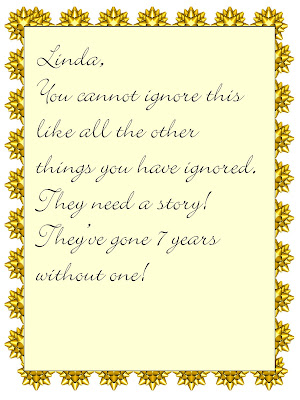 Linda,
You cannot ignore this
like all the other
things you have ignored.
They need a story!
They've gone 7 years
without one!